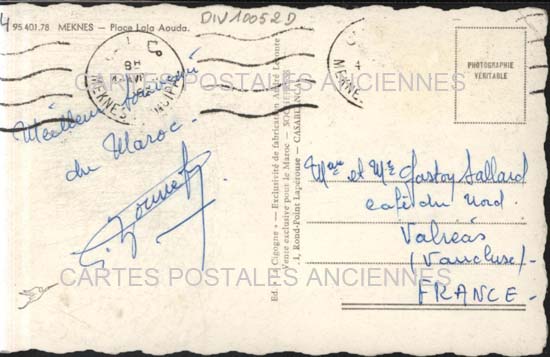 4 95.401.78 MEKNES - Place Lala Aouda.
DIV10052D
MEKNES
Meilleur souvenir
du Maroc -
PHOTOGRAPHIE
VÉRITABLE
Ed. « La Cigogne » — Exclusivité de fabrication André
Vente exclusive pour le Maroc —
1, Rond-Point Lapérouse — CASABLANCA
Mme et Mr Gaston Sallard
café du Nord
Valréas
(Vaucluse) -
FRANCE -
CARTES POSTALES ANCIENNES
CARTES POSTALES ANCIENNES